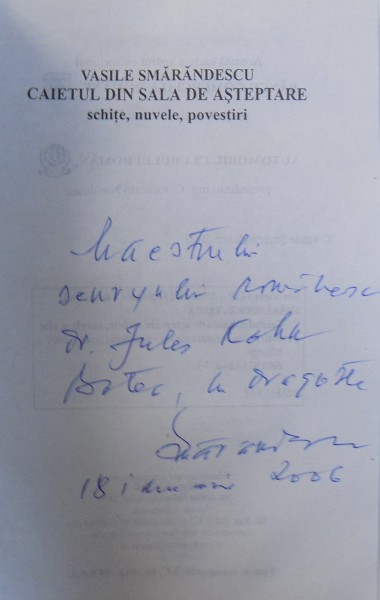 VASILE SMĂRĂNDESCU
CAIETUL DIN SALA DE AȘTEPTARE
schițe, nuvele, povestiri
Maestrului
scrisului românesc
dr. Jules Cohn
Botea, cu dragoste
Smărăndescu
18 ianuarie 2006